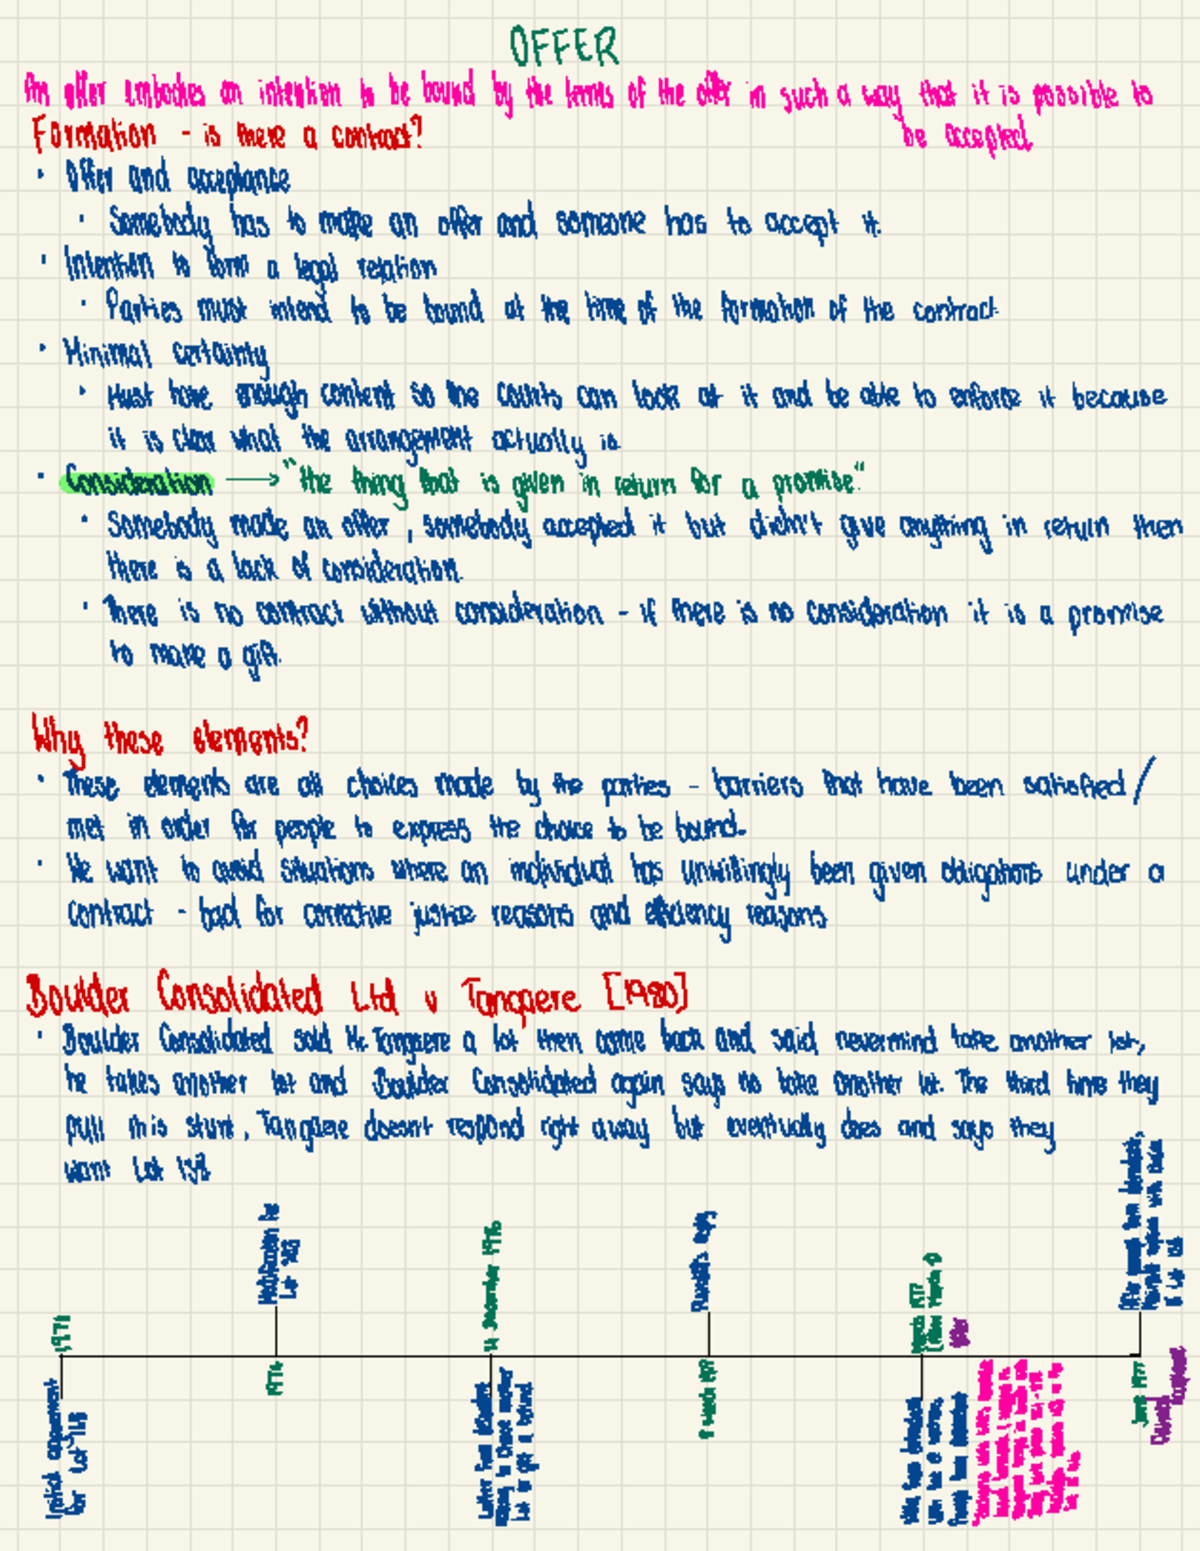 OFFER
An offer embodies an intention to be bound by the terms of the offer in such a way that it is possible to
be accepted
Formation - is there a contract?
· Offer and acceptance
· Somebody has to make an offer and someone has to accept it.
· Intention to form a legal relation
· Parties must intend to be bound at the time of the formation of the contract
· Minimal certainty
· Must have enough content so the courts can look at it and be able to enforce it because
it is clear what the arrangement actually is.
· Consideration → "the thing that is given in return for a promise."
· Somebody made an offer, somebody accepted it but didn't give anything in return then
there is a lack of consideration.
· There is no contract without consideration - if there is no consideration it is a promise
to make a gift.
Why these elements?
· These elements are all choices made by the parties - barriers that have been satisfied/
met in order for people to express the choice to be bound.
· We want to avoid situations where an individual has unwillingly been given obligations under a
contract - bad for corrective justice reasons and efficiency reasons
Boulder Consolidated Ltd v Tangaere [1980]
· Boulder Consolidated sold Mr. Tangaere a lot then came back and said nevermind take another lot,
he takes another lot and Boulder Consolidated again says no take another lot. The third time they
pull this stunt, Tangaere doesn't respond right away but eventually does and says they
want Lot 158
1971
Initial agreement
for Lot
1976
Lot
14 December 1976
Letter from
to choose another
Lot or get a refund.
reply
March 1977
March 1977
offer
June 1977